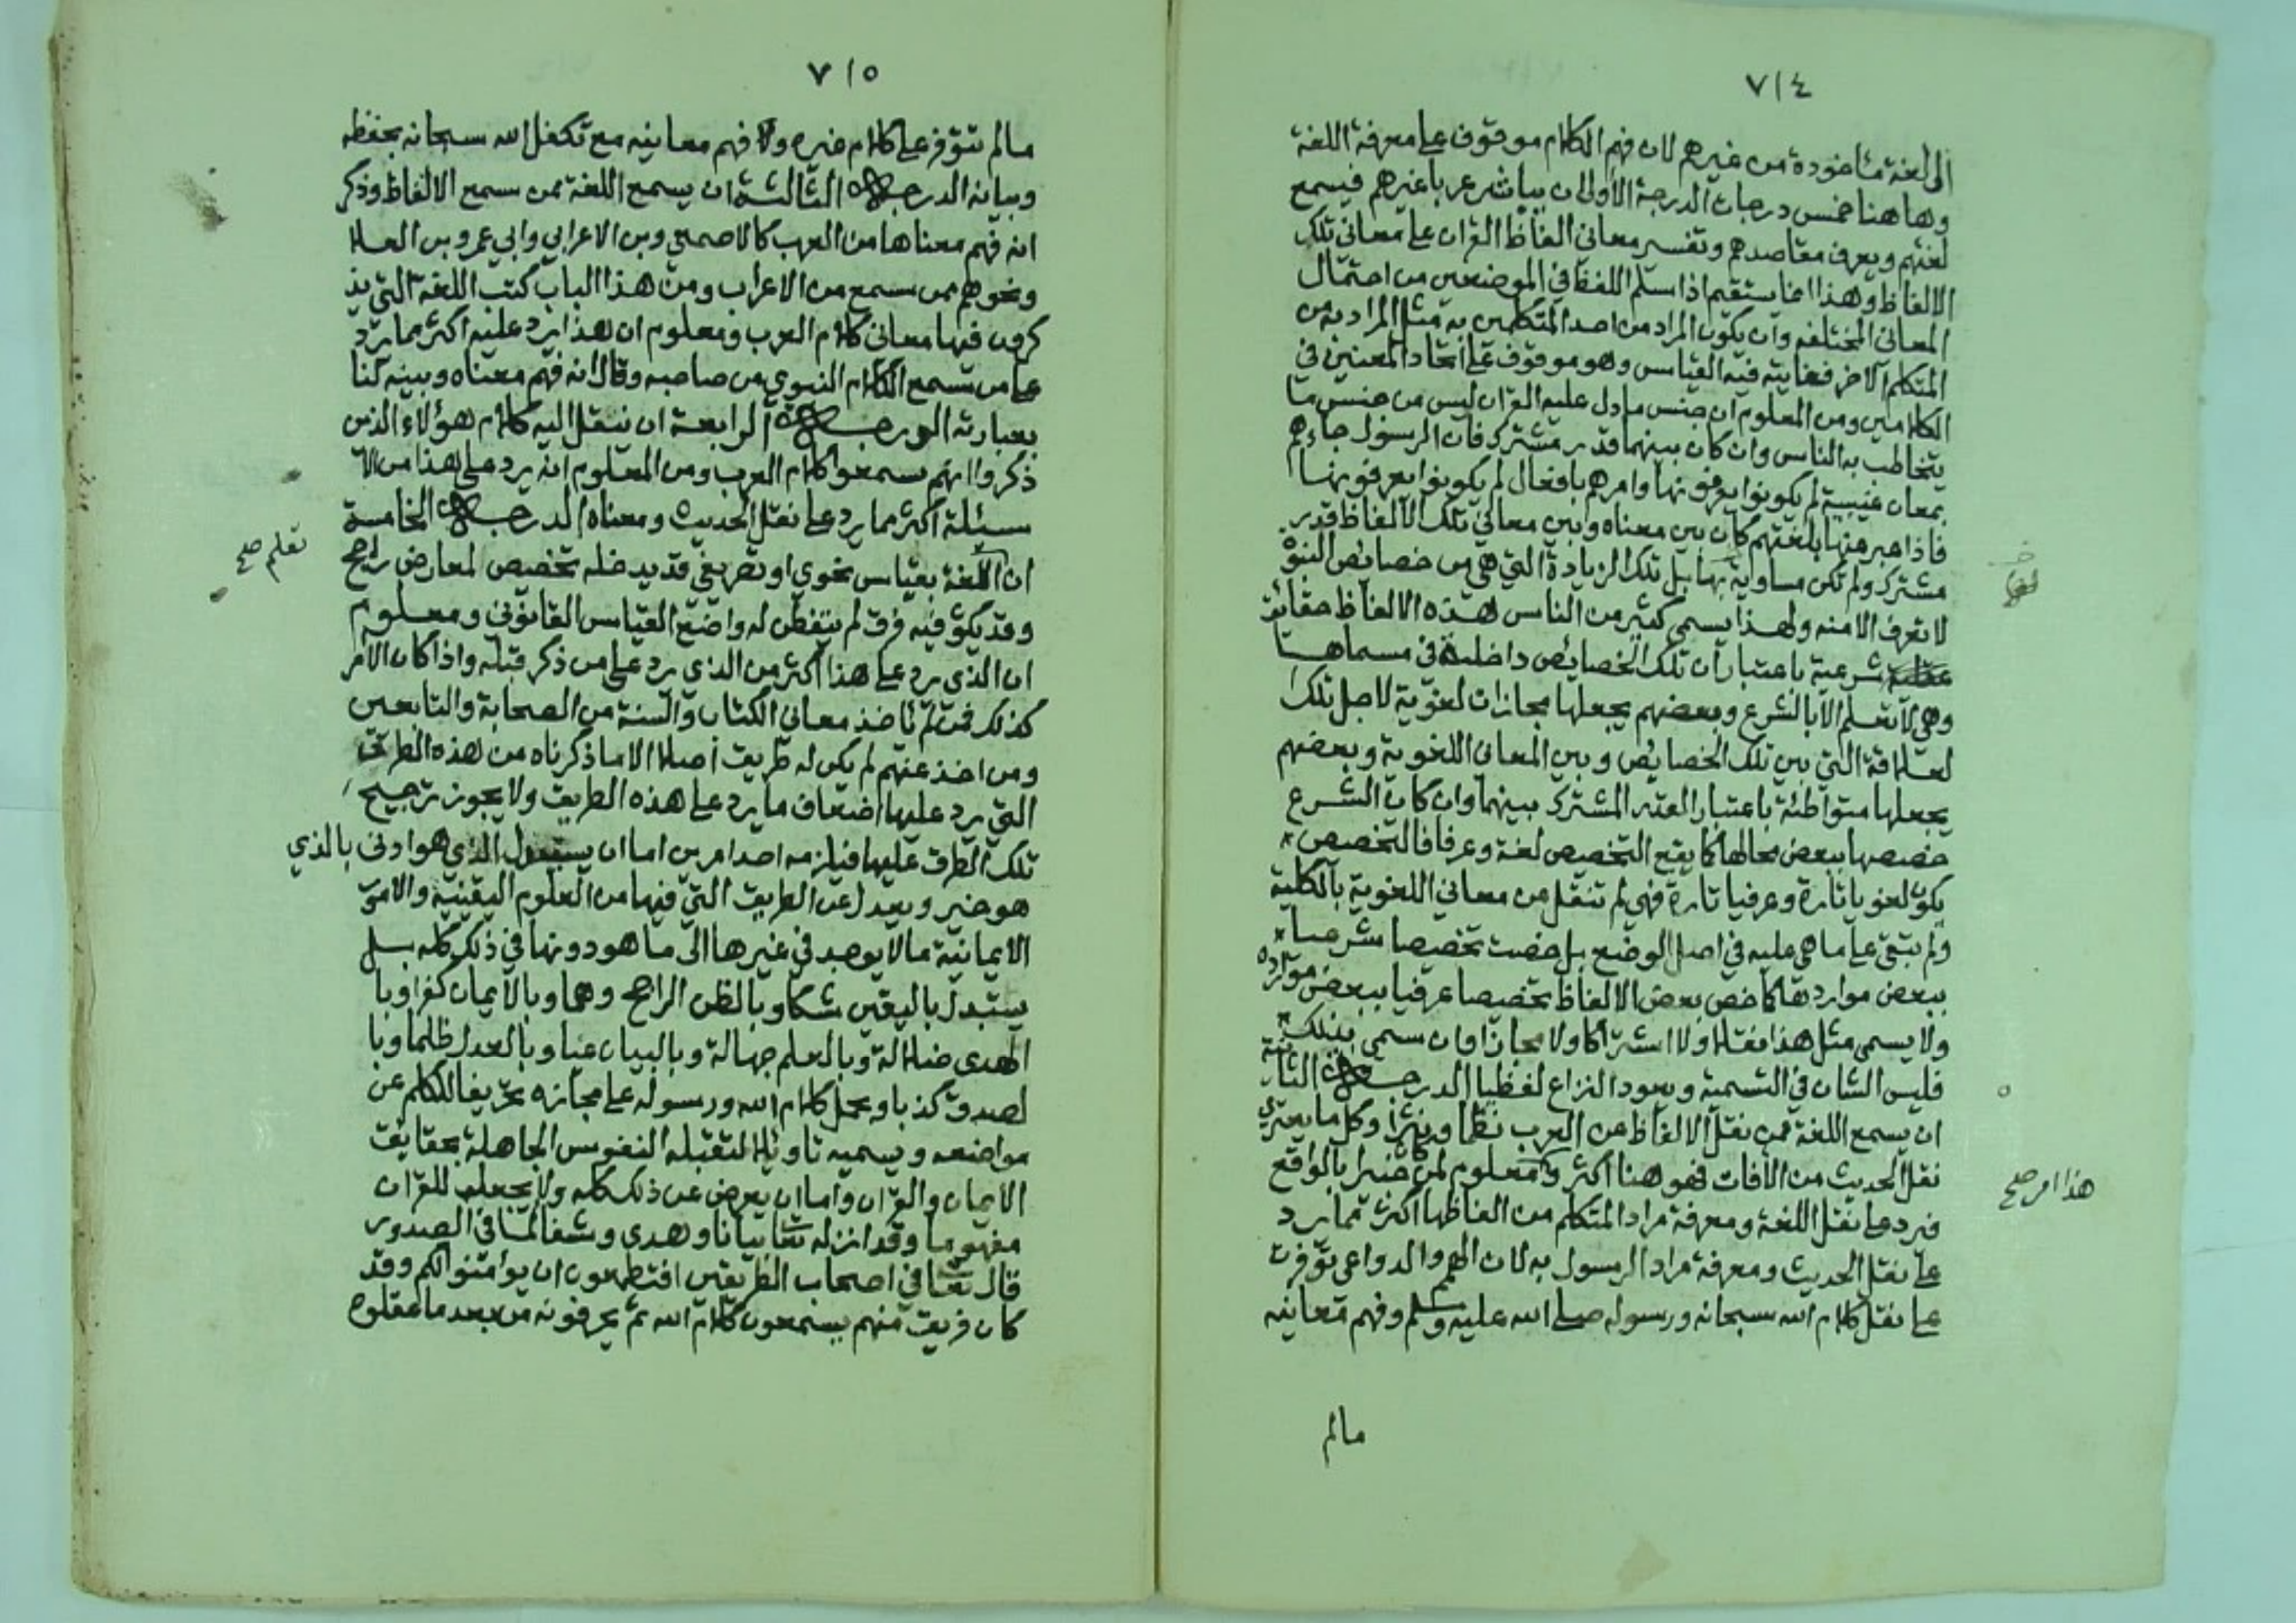 ٧١٤
الى لغة مأخوذة من غيرهم لان فهم الكلام موقوف على معرفة اللغة
وهاهنا خمس درجات الدرجة الأولى ان يباشر عربا غيرهم فيسمع
لغتهم ويعرف مقاصدهم وتفسير معاني الفاظ القران على معاني تلك
الالفاظ وهذا انما يستقيم اذا سلم اللفظ في الموضعين من احتمال
المعاني المختلفه وان يكون المراد من احد المتكلمين به مثل المراد به من
المتكلم الاخر فغايته فيه القياس وهو موقوف على اتحاد المعنيين في
الكلامين ومن المعلوم ان جنس ما دل عليه القران ليس من جنس ما
يتخاطب به الناس وان كان بينهما قدر مشترك فان الرسول جاءهم
بمعان غيبية لم يكونوا يعرفونها وامرهم بافعال لم يكونوا يعرفونها
فاذا عبر عنها بلغتهم كان بين معناه وبين معاني تلك الالفاظ قدر
مشترك ولم تكن مساوية بها بل تلك الزيادة التي هي من خصائص النبوة
لا تعرف الا منه ولهذا يسمى كثير من الناس هذه الالفاظ حقائق
شرعية باعتبار ان تلك الخصايص داخلة في مسماها
وهي لا تعلم الا بالشرع وبعضهم يجعلها مجازات لغوية لاجل تلك
لعلاقة التي بين تلك الخصايص وبين المعاني اللغوية وبعضهم
يجعلها متواطئة باعتبار القدر المشترك بينهما وان كان الشرع
خصصها ببعض محالها كما يقع التخصيص لغة وعرفا فالتخصيص
يكون لغويا تارة وعرفيا تارة فهي لم تنقل من معاني اللغوية بالكلية
ولم تبق على ما هي عليه في اصل الوضع بل خصت تخصيصا شرعيا
ببعض مواردها كما خص بعض الالفاظ تخصيصا عرفيا ببعض موارده
ولا يسمى مثل هذا نقلا ولا اشتراكا ولا مجازا وان سمي بذلك
فليس الشان في التسمية ويعود النزاع لفظيا الدرجة الثانية
ان يسمع اللغة ممن نقل الالفاظ عن العرب نظما ونثرا وكل ما يعتري
نقل الحديث من الآفات فهو هنا اكثر ومعلوم لمن خبر بالواقع
هذا امر صح
فيرد على نقل اللغة ومعرفة مراد المتكلم من الفاظها اكثر مما يرد
على نقل الحديث ومعرفة مراد الرسول به لان الهمم والدواعي توفرت
على نقل كلام الله سبحانه ورسوله صلى الله عليه وسلم وفهم معانيه
مالم
٧١٥
مالم تتوفر على كلام غيره ولا فهم معانيه مع تكفل الله سبحانه بحفظه
وبيانه الدرجة الثالثة ان يسمع اللغة ممن سمع الالفاظ وذكر
انه فهم معناها من العرب كالاصمعي وبن الاعرابي وابي عمرو بن العلا
ونحوهم ممن سمع من الاعراب ومن هذا الباب كتب اللغة التي يذ
كرون فيها معاني كلام العرب ومعلوم ان هذا يرد عليه اكثر مما يرد
على من سمع الكلام النبوي من صاحبه وقال انه فهم معناه وبينه لنا
بعبارته الدرجة الرابعة ان ينقل اليه كلام هؤلاء الذين
ذكروا انهم سمعوا كلام العرب ومن المعلوم انه يرد على هذا من الا
سئلة اكثر مما يرد على نقل الحديث ومعناه الدرجة الخامسة
تعلم صح
ان اللغة بقياس نحوي او تصريفي قد يدخله تخصيص لمعارض راجح
وقد يكون فيه فرق لم يتفطن له واضع القياس القانوني ومعلوم
ان الذي يرد على هذا اكثر من الذي يرد على من ذكر قبله واذا كان الامر
كذلك فمن لم ياخذ معاني الكتاب والسنة من الصحابة والتابعين
ومن اخذ عنهم لم يكن له طريق اصلا الا ما ذكرناه من هذه الطرق
التي يرد عليها اضعاف ما يرد على هذه الطريق ولا يجوز ترجيح
تلك الطرق عليها فيلزمه احد امرين اما ان يستبدل الذي هو ادنى بالذي
هو خير ويعدل عن الطريق التي فيها من العلوم اليقينية والامور
الايمانية مالا يوجد في غيرها الى ما هو دونها في ذلك كله بل
يستبدل باليقين شكا وبالظن الراجح وهما وبالايمان كفرا وبا
الهدى ضلالة وبالعلم جهالة وبالبيان عيا وبالعدل ظلما وبا
لصدق كذبا ويحمل كلام الله ورسوله على مجازه تحريفا للكلم عن
مواضعه ويسميه تاويلا لتقبله النفوس الجاهلة بحقايق
الايمان والقران واما ان يعرض عن ذلك كله ولا يجعل للقران
مفهوما وقد انزله تعا بيانا وهدى وشفا لما في الصدور
قال تعا في اصحاب الطريقين افتطمعون ان يؤمنوا لكم وقد
كان فريق منهم يسمعون كلام الله ثم يحرفونه من بعد ما عقلوه